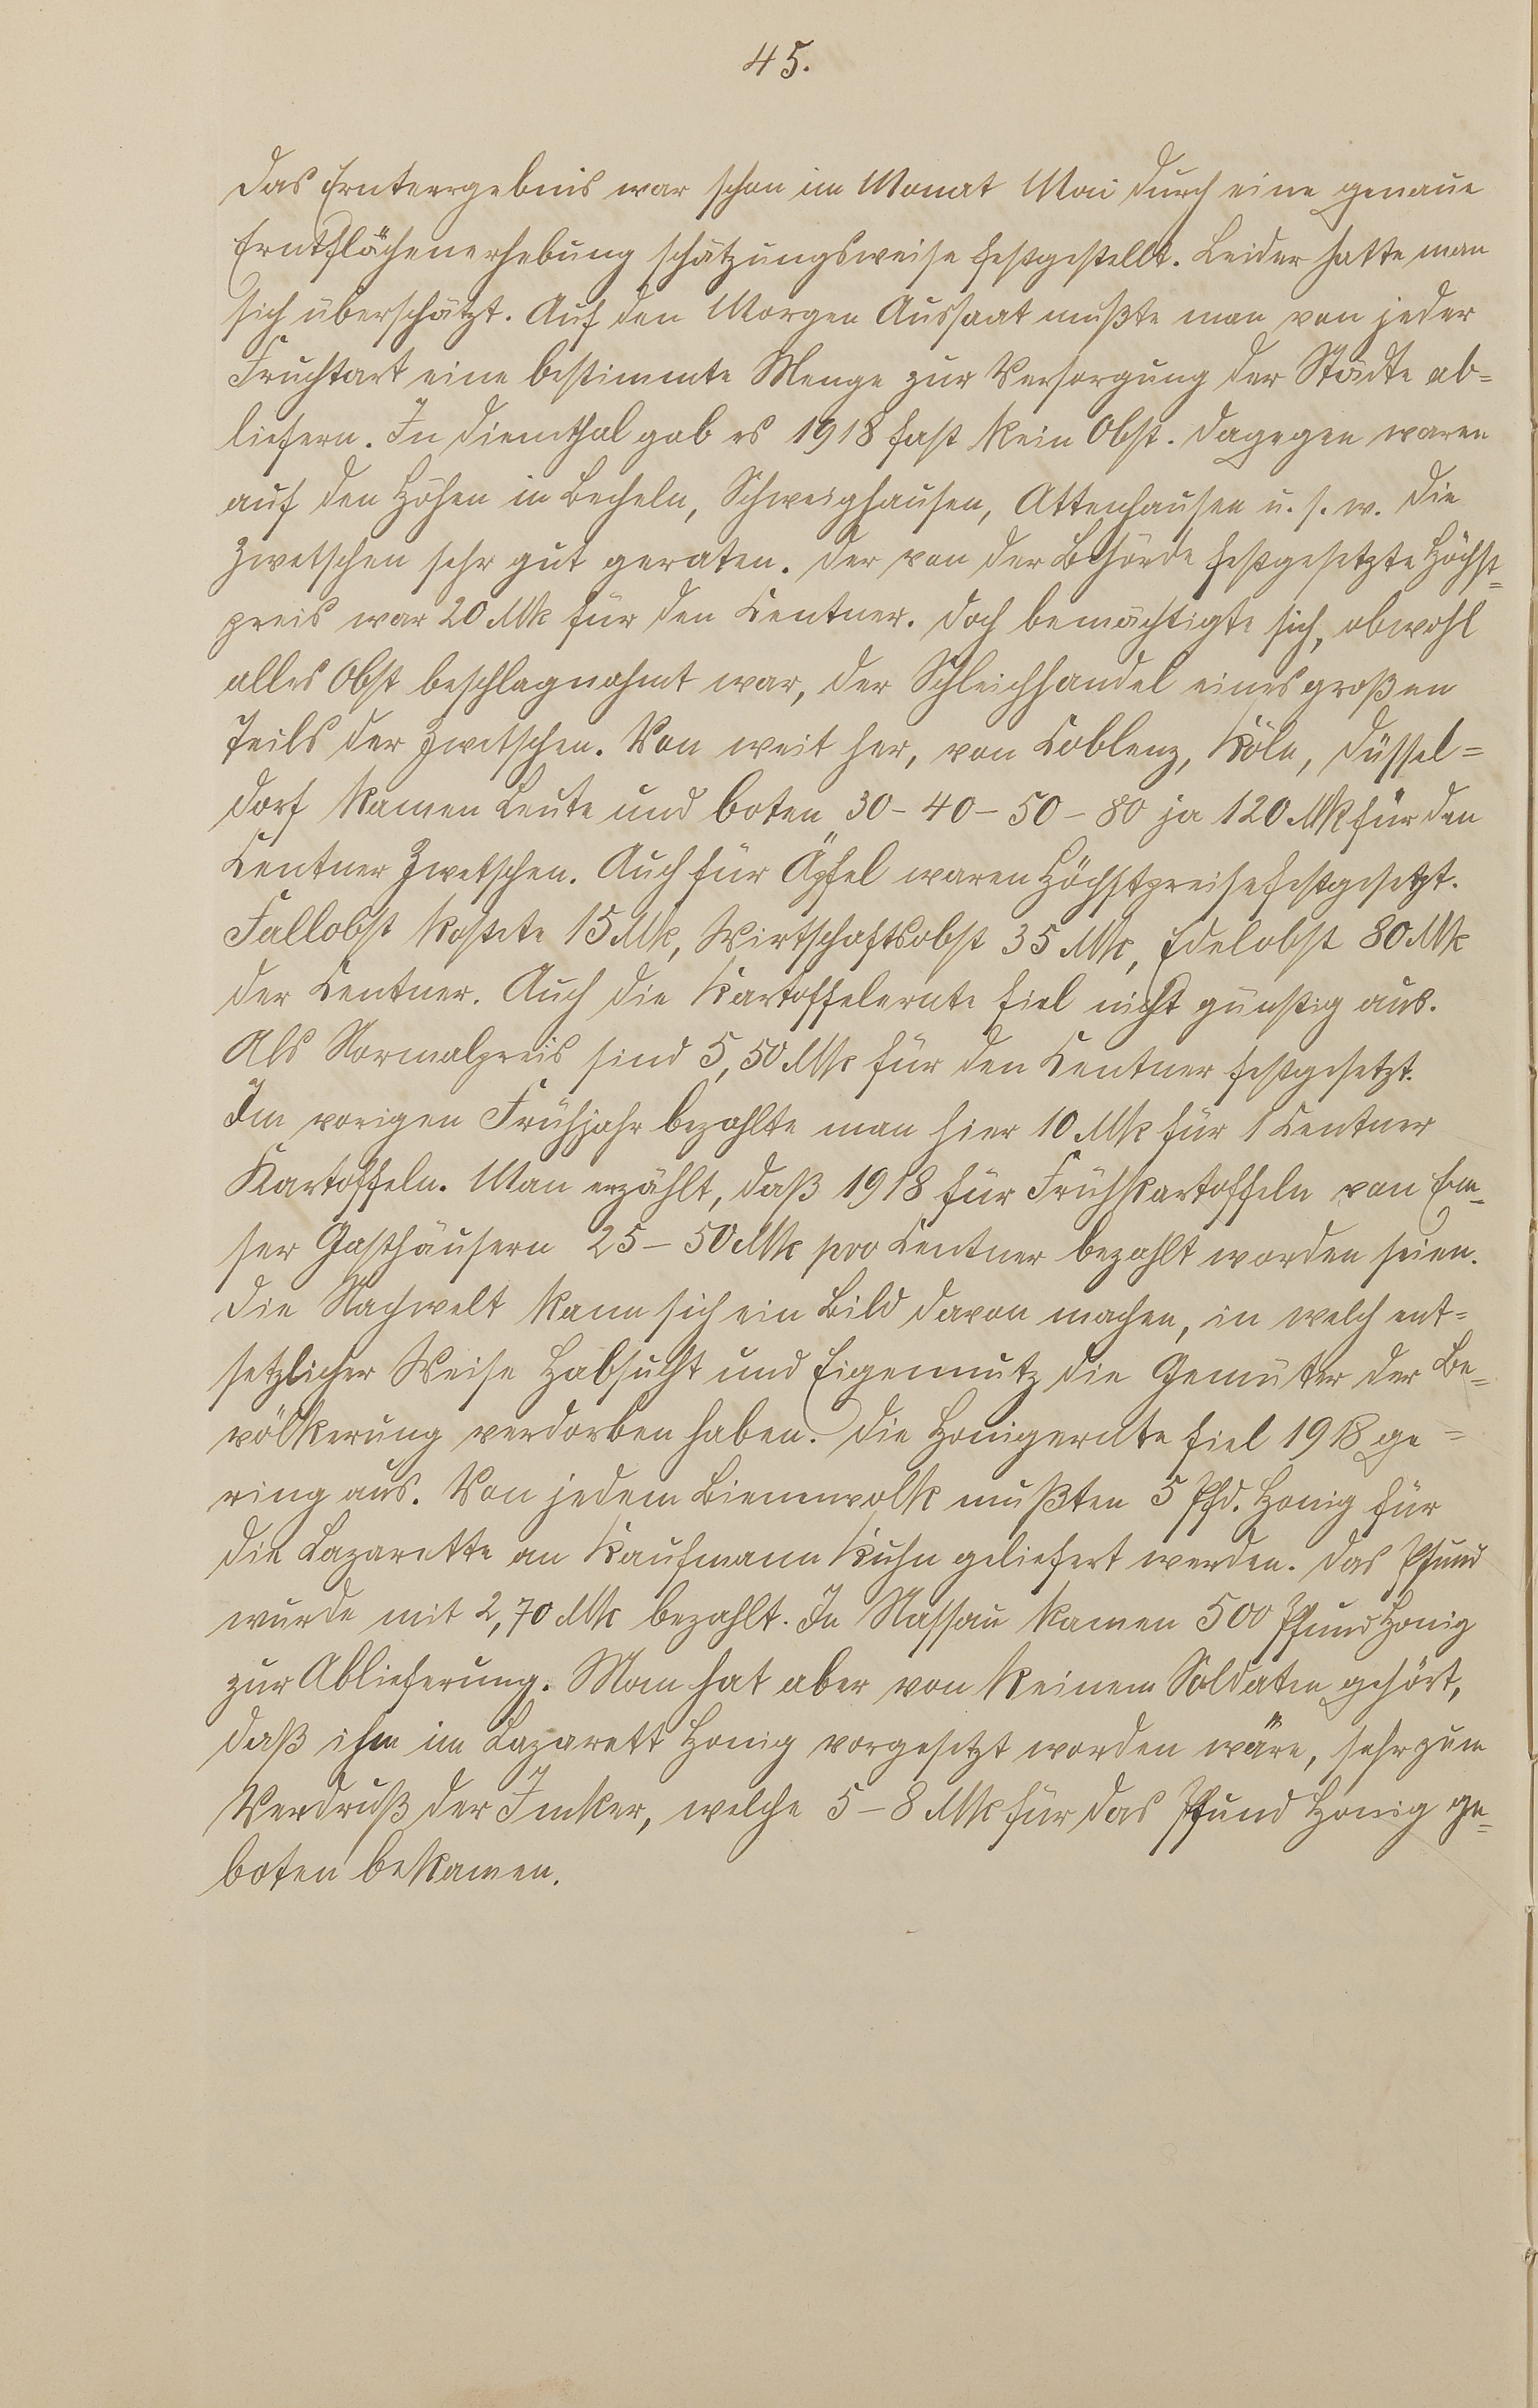 45.
Das Ernteergebnis war schon im Monat Mai durch eine genaue
Ernteflächenerhebung schätzungsweise festgestellt. Leider hatte man
sich überschätzt. Auf den Morgen Aussaat mußte man von jeder
Fruchtart eine bestimmte Menge zur Versorgung der Städte ab=
liefern. In Dienethal gab es 1918 fast kein Obst. Dagegen waren
auf den Höhen in Becheln, Schweighausen, Attenhausen u. s. w. die
Zwetschen sehr gut geraten. Der von der Behörde festgesetzte Höchst=
preis war 20 Mk für den Centner. Doch bemächtigte sich, obwohl
alles Obst beschlagnahmt war, der Schleichhandel eines großen
Teils der Zwetschen. Von weit her, von Coblenz, Köln, Düssel=
dorf kamen Leute und boten 30-40-50-80 ja 120 Mk für den
Centner Zwetschen. Auch für Äpfel waren Höchstpreise festgesetzt.
Fallobst kostete 15 Mk, Wirtschaftsobst 35 Mk, Edelobst 80 Mk
der Centner. Auch die Kartoffelernte fiel nicht günstig aus.
Als Normalpreis sind 5,50 Mk für den Centner festgesetzt.
Im vorigen Frühjahr bezahlte man hier 10 Mk für 1 Centner
Kartoffeln. Man erzählt, daß 1918 für Frühkartoffeln von Em=
ser Gasthäusern 25-50 Mk pro Centner bezahlt worden seien.
Die Nachwelt kann sich ein Bild davon machen, in welch ent=
setzlicher Weise Habsucht und Eigennutz die Gemüter der Be=
völkerung verdorben haben. Die Honigernte fiel 1918 ge=
ring aus. Von jedem Bienenvolk mußten 5 Pfd. Honig für
die Lazarette an Kaufmann Kuhn geliefert werden. Das Pfund
wurde mit 2,70 Mk bezahlt. In Nassau kamen 500 Pfund Honig
zur Ablieferung. Man hat aber von keinem Soldaten gehört,
daß ihm im Lazarett Honig vorgesetzt worden wäre, sehr zum
Verdruß der Imker, welche 5-8 Mk für das Pfund Honig ge=
boten bekamen.